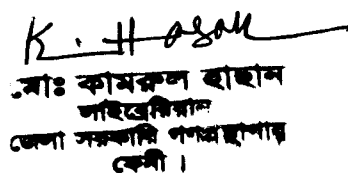 K. Hasan
মোঃ কামরুল হাছান
লাইব্রেরিয়ান
জেলা সরকারি গণগ্রন্থাগার
ফেনী ।